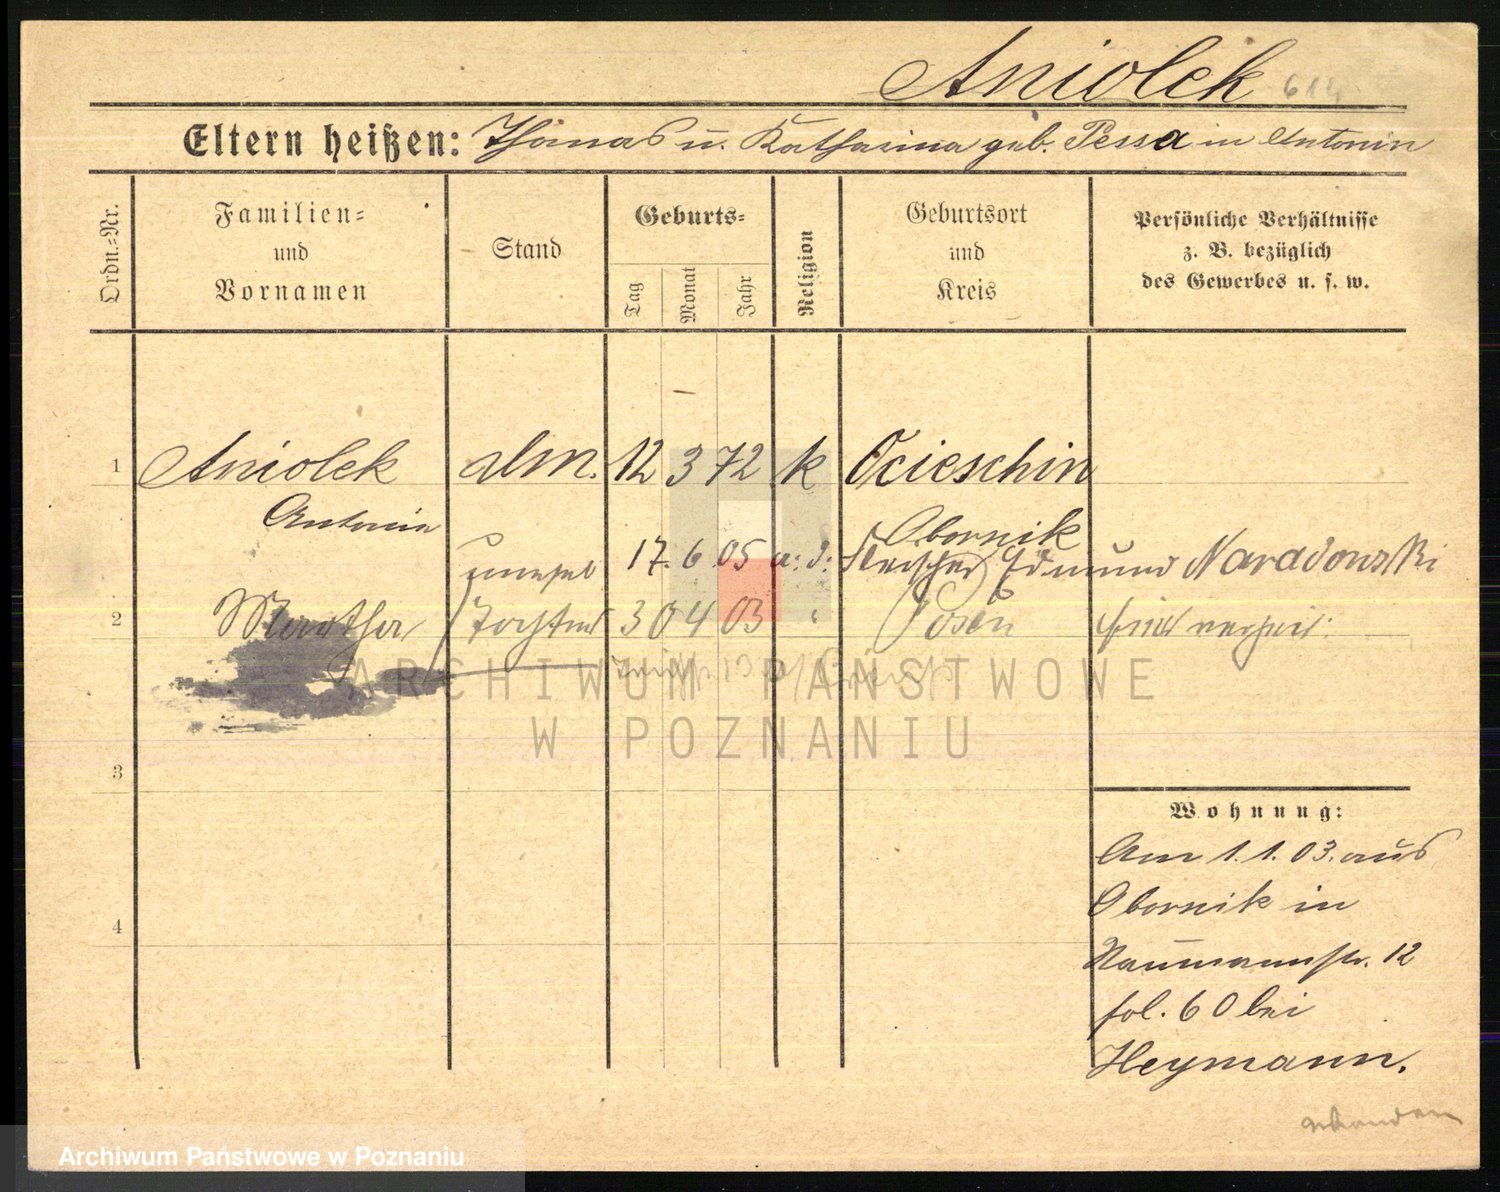 Aniolek 614
Eltern heißen: Thomas u. Katharina geb. Pessa in Antonin
Ordn.=Nr.
Familien=
und
Vornamen
Stand
Geburts=
Tag
Monat
Jahr
Religion
Geburtsort
und
Kreis
Persönliche Verhältnisse
z. B. bezüglich
des Gewerbes u. s. w.
1 Aniolek alm. 12 3 72 k Ocieschin
Antonin Obornik
unehel 17. 6 05 a. d. Fleischer Edmund Naradowski
2 Martha Tochter 30 4 03 " Posen sind verheir.
ARCHIWUM PAŃSTWOWE
W POZNANIU
3
Wohnung:
Am 1.1.03. aus
Obornik in
4
Naumannstr. 12
fol. 60 bei
Heymann.
Archiwum Państwowe w Poznaniu